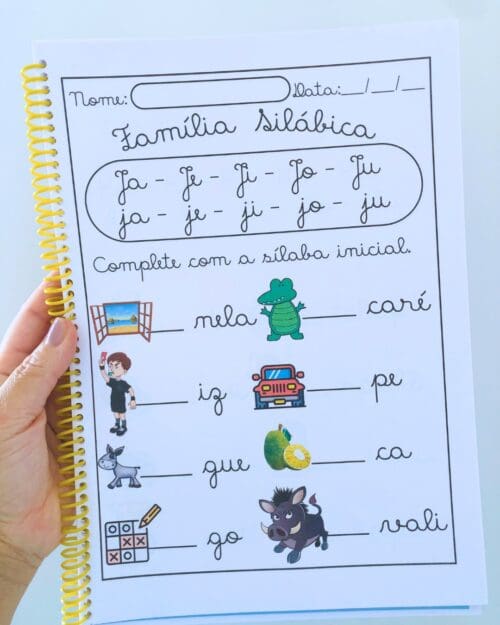 Nome: Data:__/__/__
Família Silábica
Ja - Je - Ji - Jo - Ju
ja - je - ji - jo - ju
Complete com a sílaba inicial.
___ nela ___ caré
___ iz ___ pe
___ gue ___ ca
___ go ___ vali